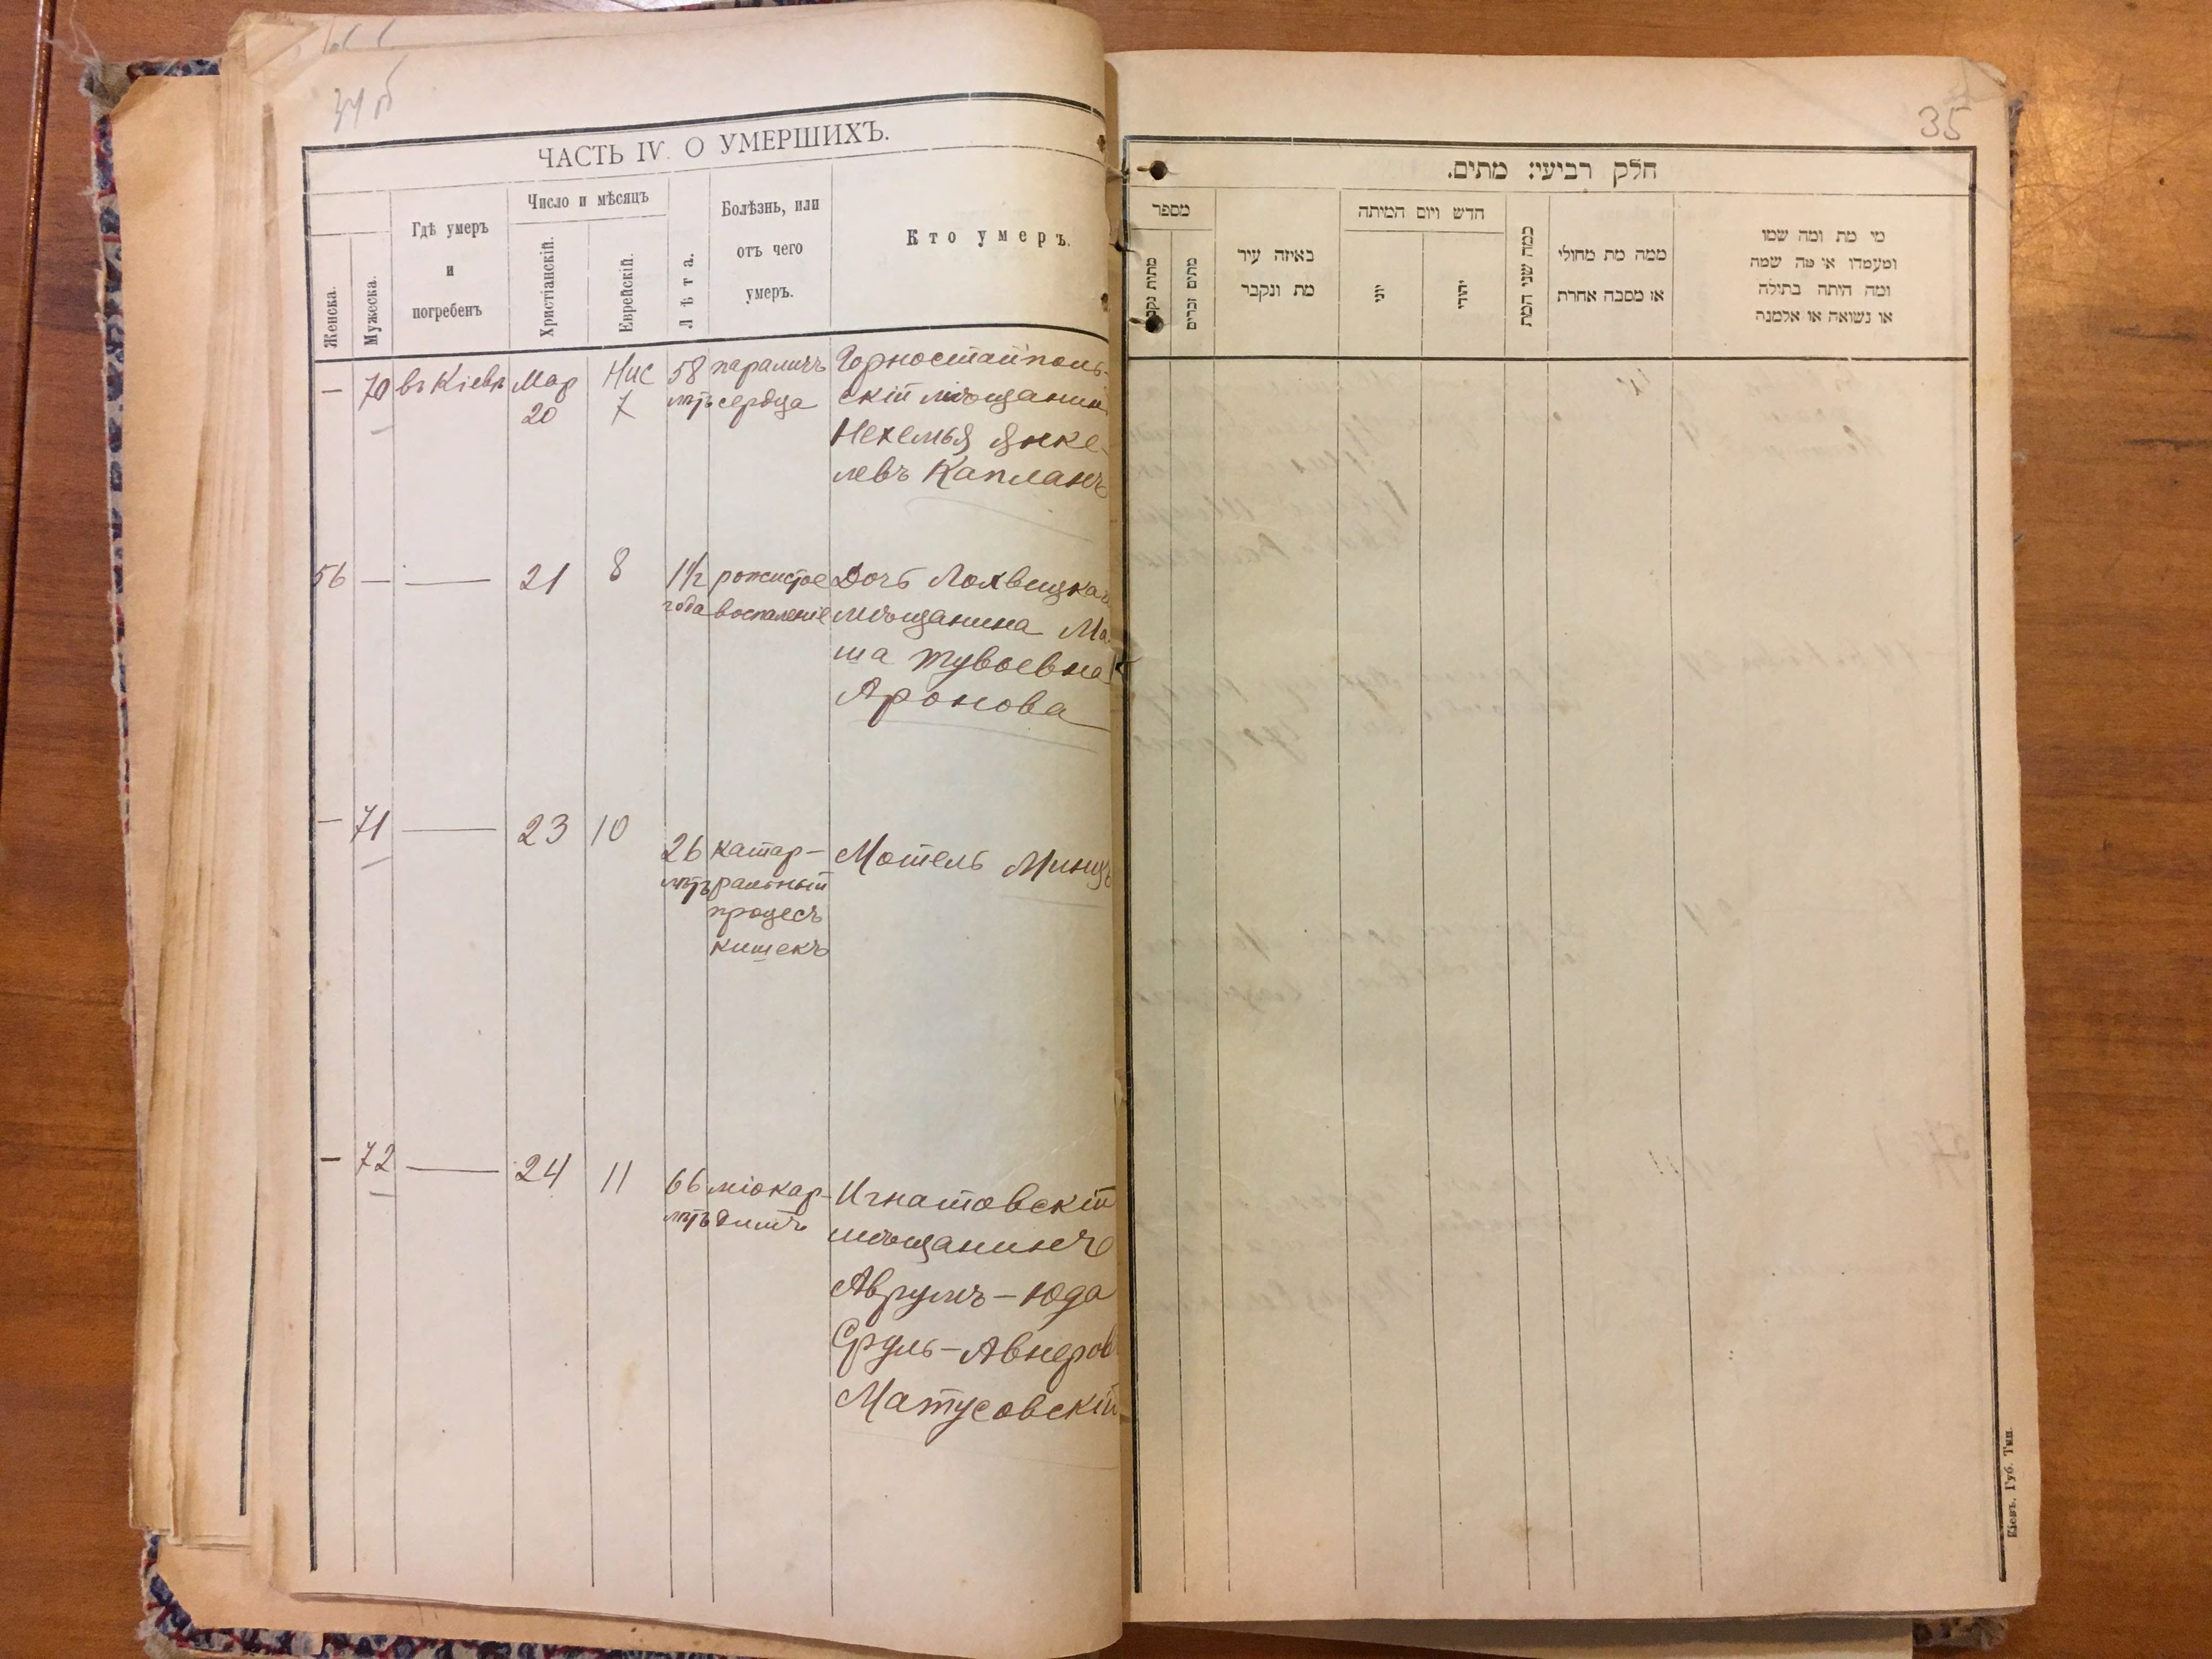 34 б
ЧАСТЬ IV. О УМЕРШИХЪ.
Женска.
Мужеска.
Гдѣ умеръ
и
погребенъ
Число и мѣсяцъ
Христіанскій.
Еврейскій.
Лѣта.
Болѣзнь, или
отъ чего
умеръ.
Кто умеръ.
— 70 въ Кіевѣ Мар 20 Нис 7 58 лѣтъ
параличъ
сердца
Горностайполь-
скій мѣщанинъ
Нехемья Янке-
левъ Капланъ
56 — — 21 8 1½ года
рожистое
воспаленіе
Дочь Лохвицкаго
мѣщанина Ма-
ша Тувьевна
Аронова
— 71 — 23 10 26 лѣтъ
катар-
ральный
процесъ
кишекъ
Мотель Минцъ
— 72 — 24 11 66 лѣтъ
міокар-
дитъ
Игнатовскій
мѣщанинъ
Аврумъ-Юда
Сруль-Авнеровъ
Матусовскій
35
חלק רביעי: מתים.
מספר
מתים זכרים
באיזה עיר
מת ונקבר
חדש ויום המיתה
יוני
יהודי
כמה שני המת
ממה מת מחולי
או מסבה אחרת
מי מת ומה שמו
ומעמדו או מה שמה
ומה היתה בתולה
או נשואה או אלמנה
Кіевъ. Губ. Тип.